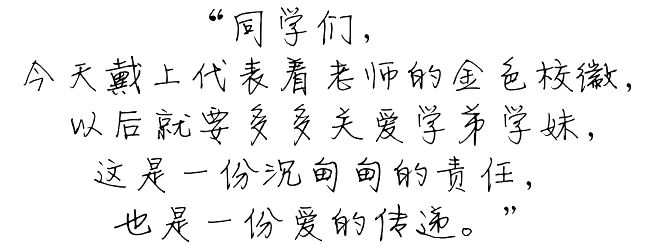 “同学们，
今天戴上代表着老师的金色校徽，
以后就要多多关爱学弟学妹，
这是一份沉甸甸的责任，
也是一份爱的传递。”